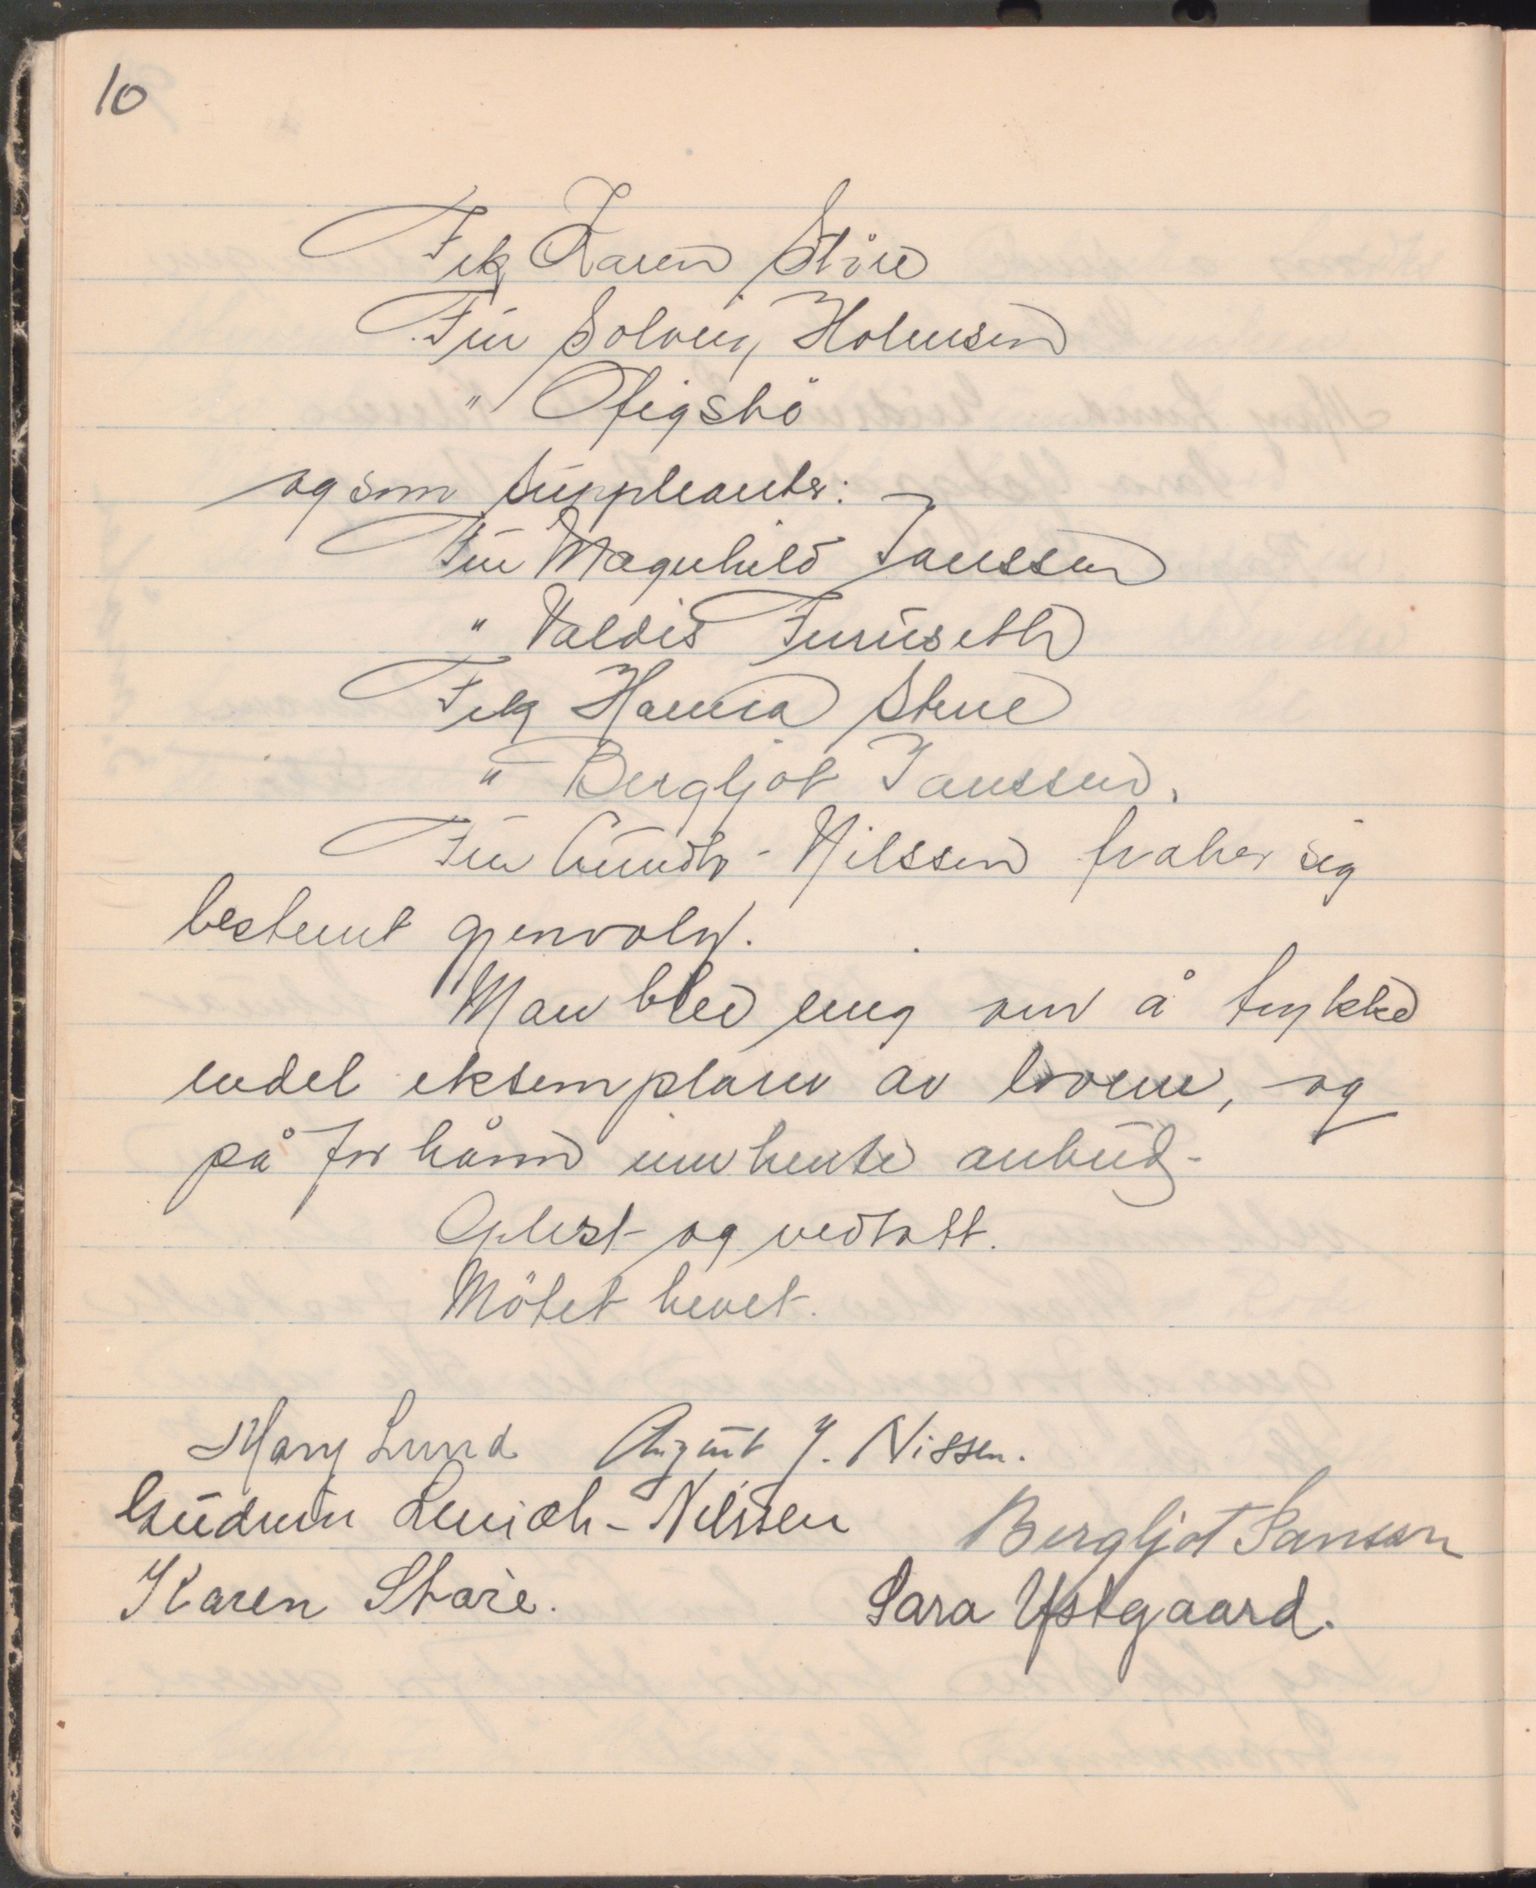 10
Frk Karen Støre
Fru Solveig Holmsen
" Ofigsbø
og som suppleanter:
Fru Magnhild Janssen
" Valdis Furuseth
Frk Hanna
" Bergljot Janssen.
Fru Gundh-Nilssen fraber sig
bestemt gjenvalg.
Man blev enig om å trykke
endel eksemplarer av lovene, og
på forhånd innhente anbud.
Oplest og vedtatt.
Møtet hevet.
Mary Lund August J. Nissen.
Gudrun -Nilssen Bergljot Janssen
Karen Støre. Sara Ystgaard.